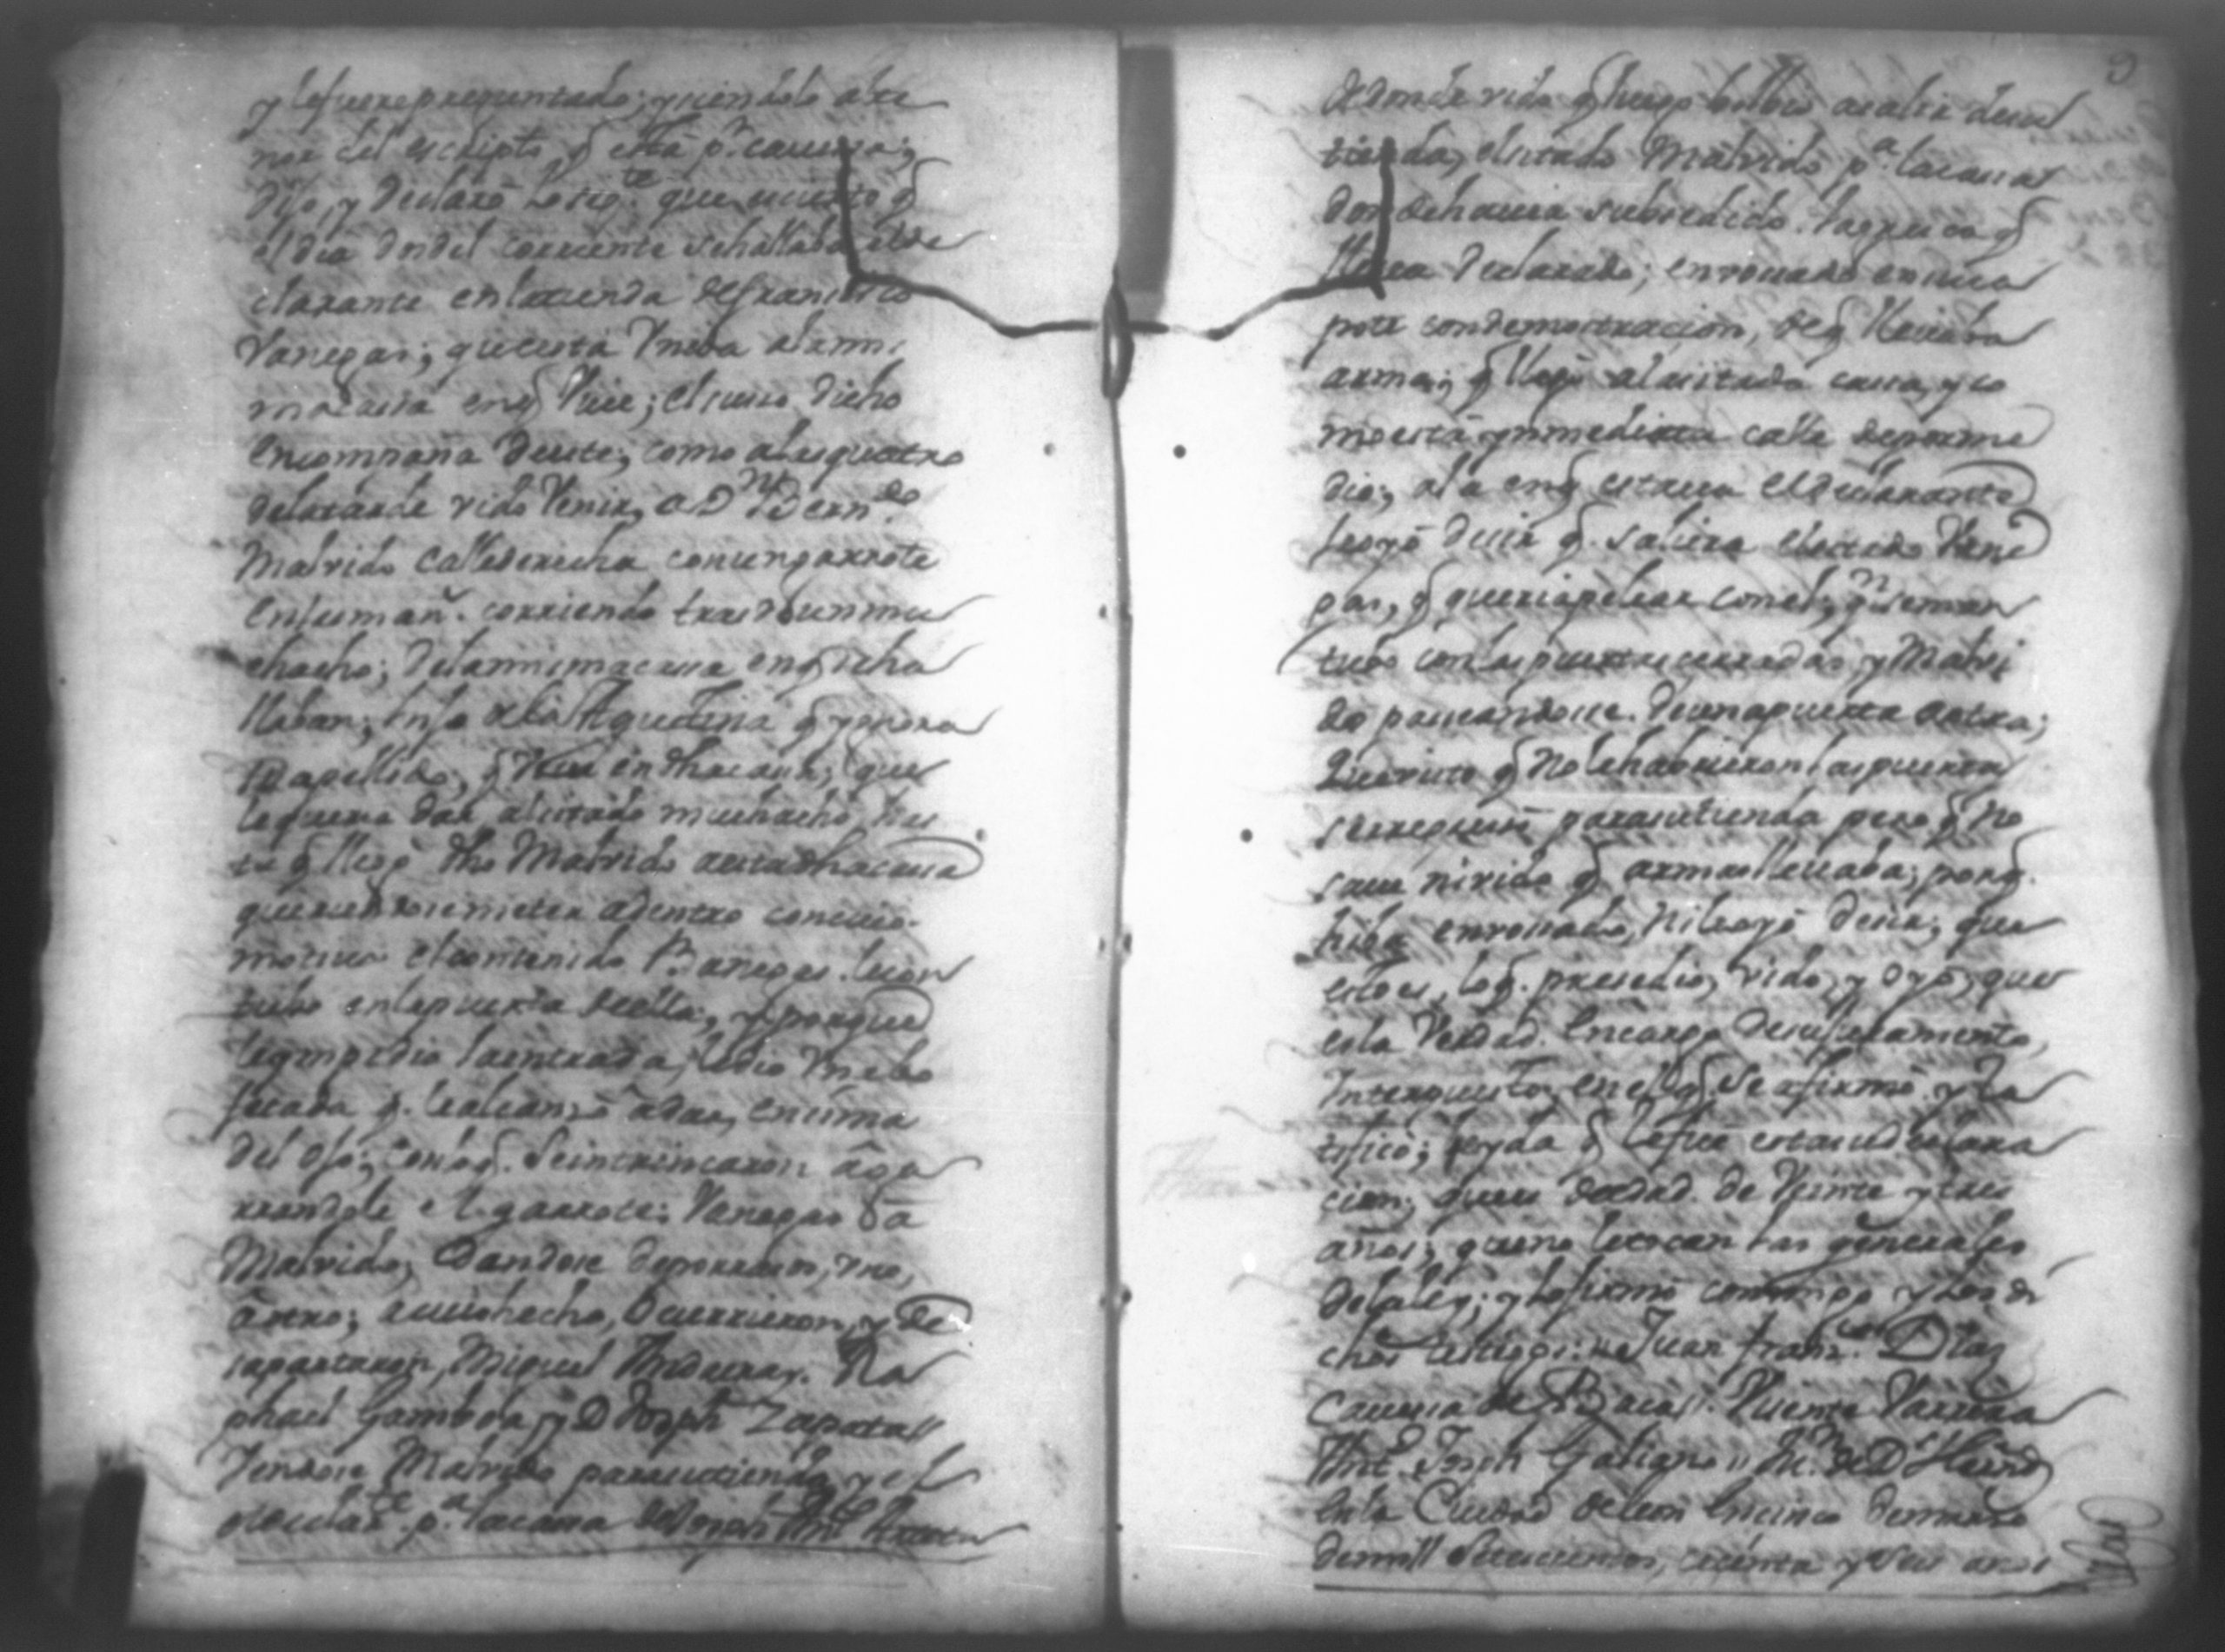 y le fuere preguntado; y siendolo al te
nor del escripto q̃ está p.r cavesa;
Dijo, y declaró Lo sig.te que es cierto q̃
el dia dos del corriente se hallaba el de
clarante en la tienda de Francisco
Vanegas; que esta Vnida a la mis
ma casa en q̃ Vive; el suso dicho
en compañia de este; como a las quatro
de la tarde vido Venir, a D.n Bern.do
Malvido Calle derecha con un garrote
en su man.o corriendo tras de un mu
chacho; de la misma casa en q̃ se ha
llaban; hijo de la Agustina q̃ ygnora
su apellido, q̃ Vive en dha casa; que
le queria dar al sitado muchacho, has
ta q̃ llegó dho Malvido a esta dha casa
queriendose meter adentro con cuio
motivo el contenido Banegas lo con
tubo en la puerta de ella, y porque
le ympidio la entrada, le dio Vn
q̃ le alcanzó â dar, encima
del ojo; con lo q̃ se intrincaron âga
rrandole el garrote Vanegas â
Malvido, Dandose de porrasos, Vno,
â otro; a cuio hecho, Ocurrieron, y de
sapartaron, Miguel Ra
phael Gamboa y D Joseph Zapata
Yendose Malvido para su tienda y el
declar.te p.a la casa de Joseph Ant.o
de donde vido q̃ luego bolbio a salir de su
tienda, el sitado Malvido p.a la casa
donde havia subsedido lo q̃
lleva declarado; embosado en su ca
pote con demostracion, de q̃ llevaba
armas; q̃ llegó a la sitada casa, y co
mo está ynmediata calle de por me
dio; a la en q̃ estava el declarante
le oyó decir q̃ saliera el sitado Vane
gas, q̃ queria pelear con el; q.n se man
tubo con las puertas cerradas y Malvi
do paseandose de una puerta a otra;
que visto q̃ no le habrieron las puertas
se regresó para su tienda pero q̃ no
save ni vido q̃ armas llevaba; porq̃
hiba embosado, ni le oyó decir; que
esto es, lo q̃ presedio, vido, y oyó, que
es la Verdad En cargo de su juramento,
Interpuesto, en el q̃ se afirmó y Ra
tificó; leyda q̃ le fue esta su declara
cion; que es de edad de Veinte y tres
años; que no le tocan las generales
de la ley; y lo firmó conmigo y los di
chos testigos: Juan Fran.co Diaz
Cavesa de Baca Vicente
Ant.o Joseph Galiano
En la Ciudad de Leon En cinco de marzo
de mill Setecientos, y seis años